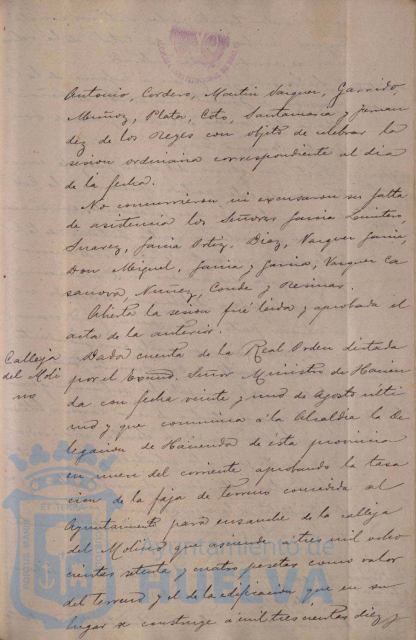 Antonio, Cordero, Martin Vazquez, Garrido,
Muñoz, Plata, Coto, Santamaria y Fernan
dez de los Reyes con objeto de celebrar la
sesion ordinaria correspondiente al dia
de la fecha.
No concurrieron ni excusaron su falta
de asistencia los Señores Garcia
Suarez, Garcia Ortiz, Diaz, Vazquez Garcia,
Don Miguel, Garcia y Garcia, Vazquez Ca
sanova, Nuñez, Conde y
Abierta la sesion fué leida y aprobada el
acta de la anterior.
Calleja
del Moli
no
Dada cuenta de la Real Orden dictada
por el Excmo. Señor Ministro de Hacien
da con fecha veinte y uno de Agosto últi
mo y que comunica á la Alcaldia la De
legacion de Hacienda de ésta provincia
en nueve del corriente aprobando la tasa
cion de la faja de terreno concedida al
Ayuntamiento para ensanche de la calleja
del Molino, que asciende á tres mil ocho
cientas setenta y cuatro pesetas como valor
del terreno y el de la edificacion que en su
lugar se construye á mil trescientas diez y
Ayuntamiento de
HUELVA